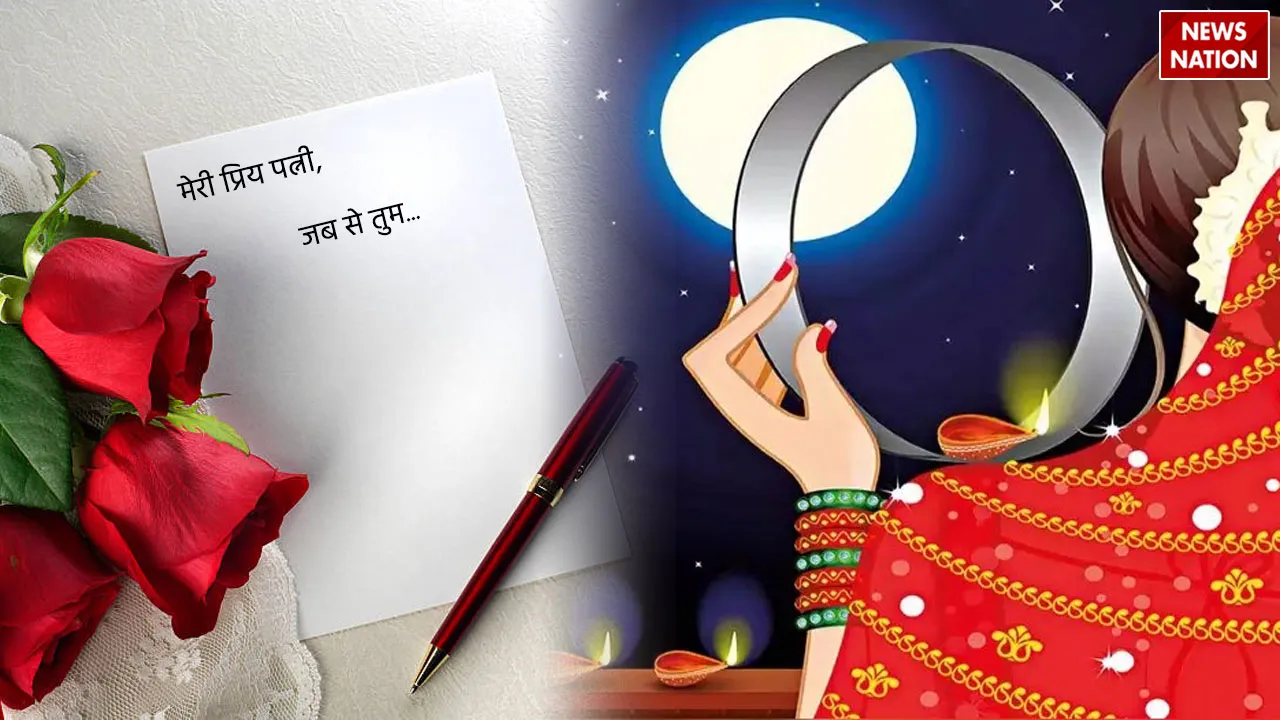 मेरी प्रिय पत्नी,
जब से तुम...
NEWS
NATION